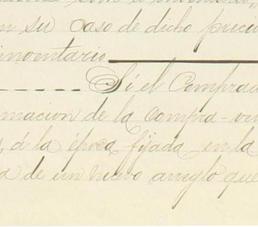 n su caso de dicho precio
inventario
Si el Comprad
macion de la compra-ven
, á la época fijada en la
a de un nuevo arreglo que